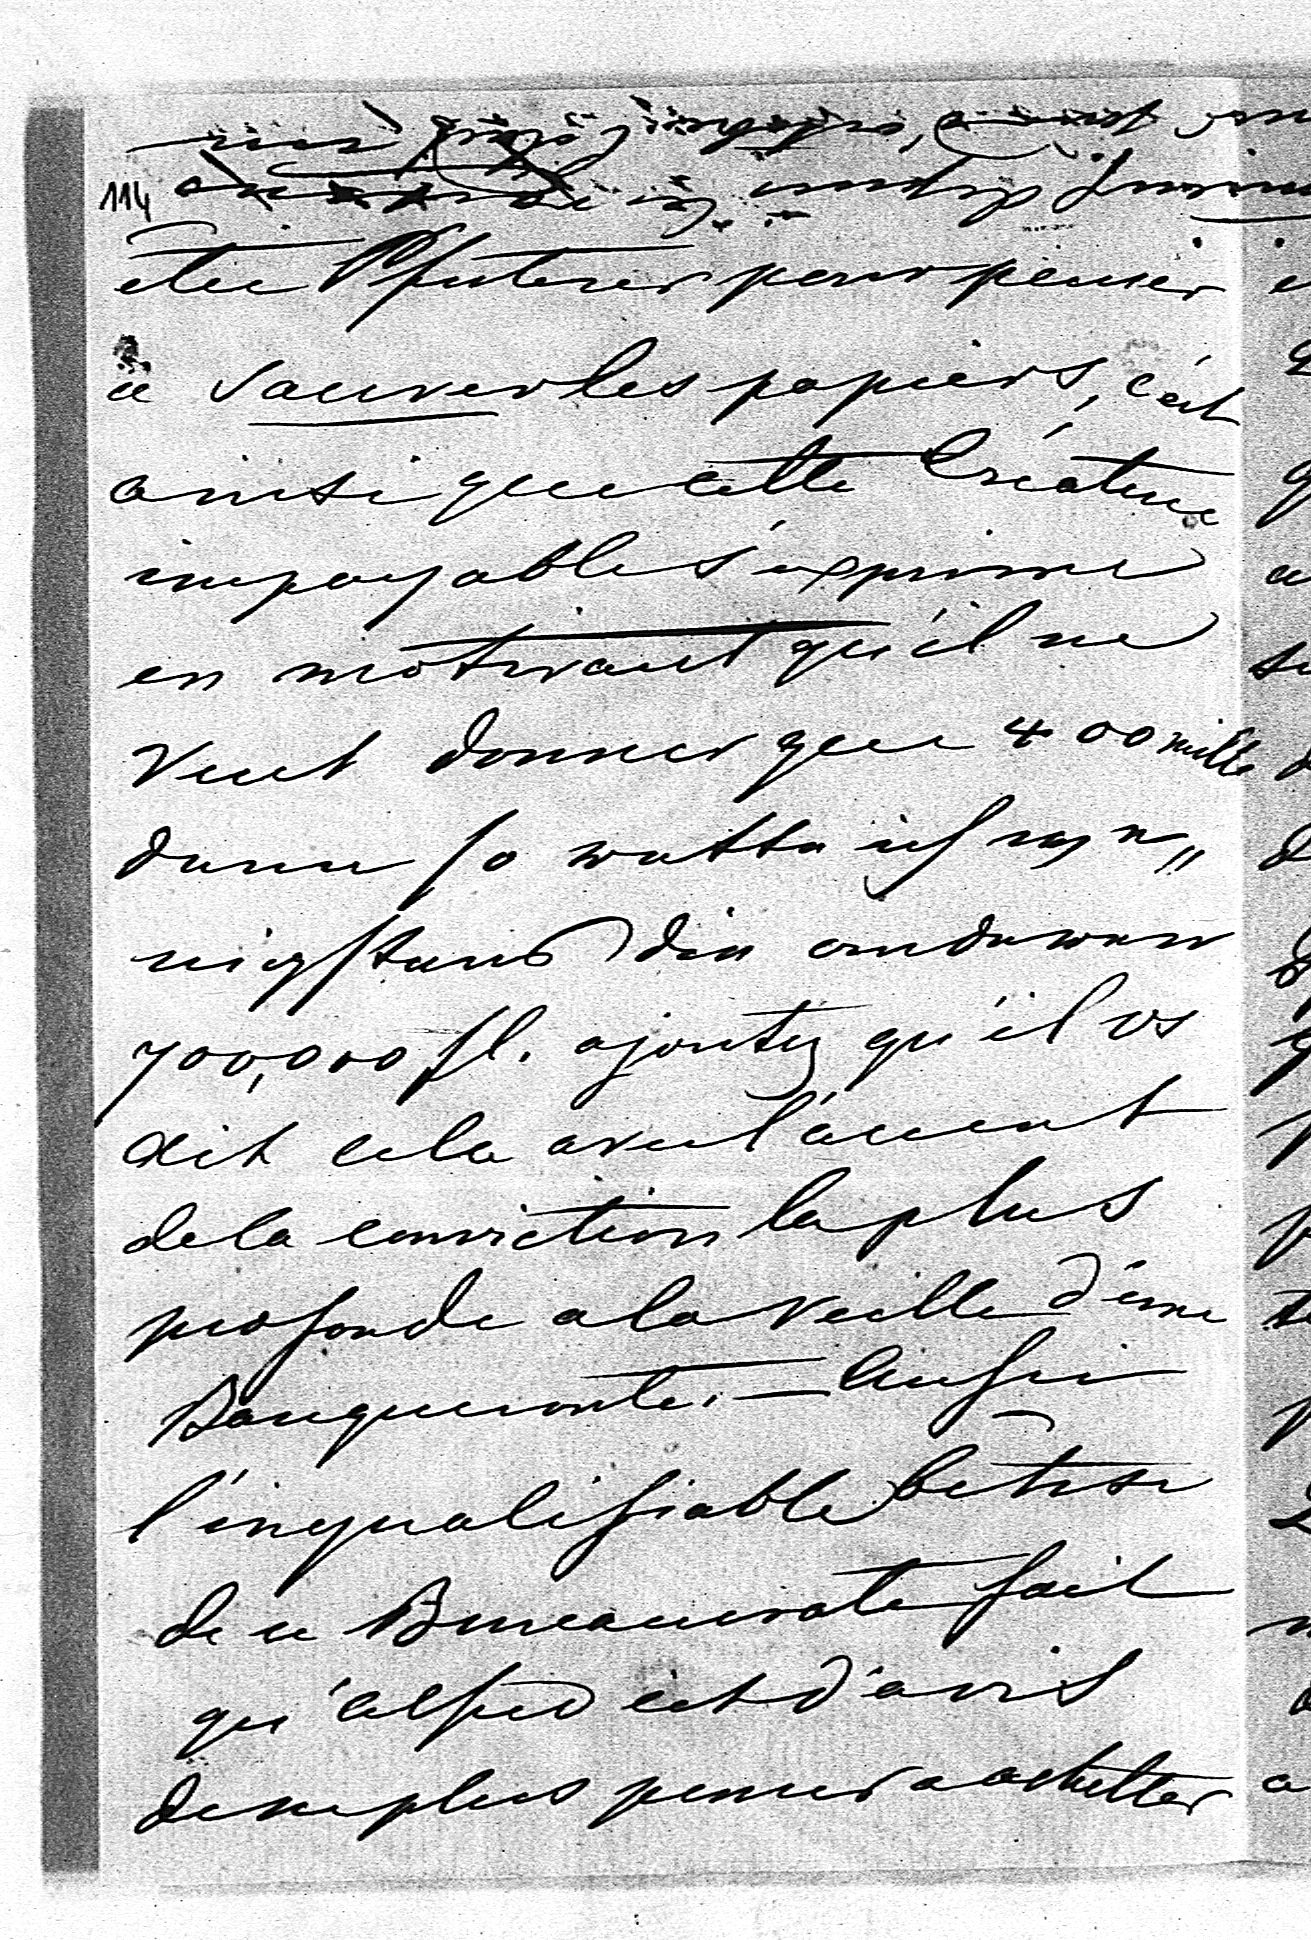 114
etee Pputerer pour penser
à sauver les papiers, c'est
ainsi que cette Créature
impayable s'exprime
en motivant qu'il ne
veut donner que 400 mille
denn so wette ich we„
nigstens die anderen
700,000 fl. ajoutez qu'il vs
dit cela avec l'accent
de la conviction la plus
profonde a la veille d'une
Banqueroute. — Aussi
l'inqualifiable bêtise
de ce Bureaucrate fait
qu'Alfred est d'avis
de ne plus penser a achetter